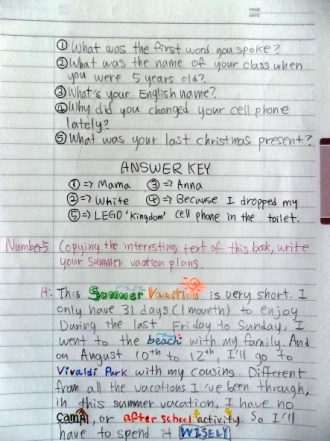 PAGE
DATE
① What was the first word you spoke?
② What was the name of your class when
you were 5 years old?
③ What's your English name?
④ Why did you changed your cell phone
lately?
⑤ What was your last christmas present?
ANSWER KEY
① => Mama ③ => Anna
② => White ④ => Because I dropped my
⑤ => LEGO 'kingdom' cell phone in the toilet.
Number5 Copying the interesting text of this book, write
your summer vaation plans.
A: This Summer Vacation is very short. I
only have 31 days (1 month) to enjoy
During the last Friday to Sunday, I
went to the beach with my family. And
on August 10th to 12th, I'll go to
Vivaldi Park with my cousins. Different
from all the vacations I've been through,
in this summer vacation, I have no
Camp, or after school activity. So I'll
have to spend it WISELY!